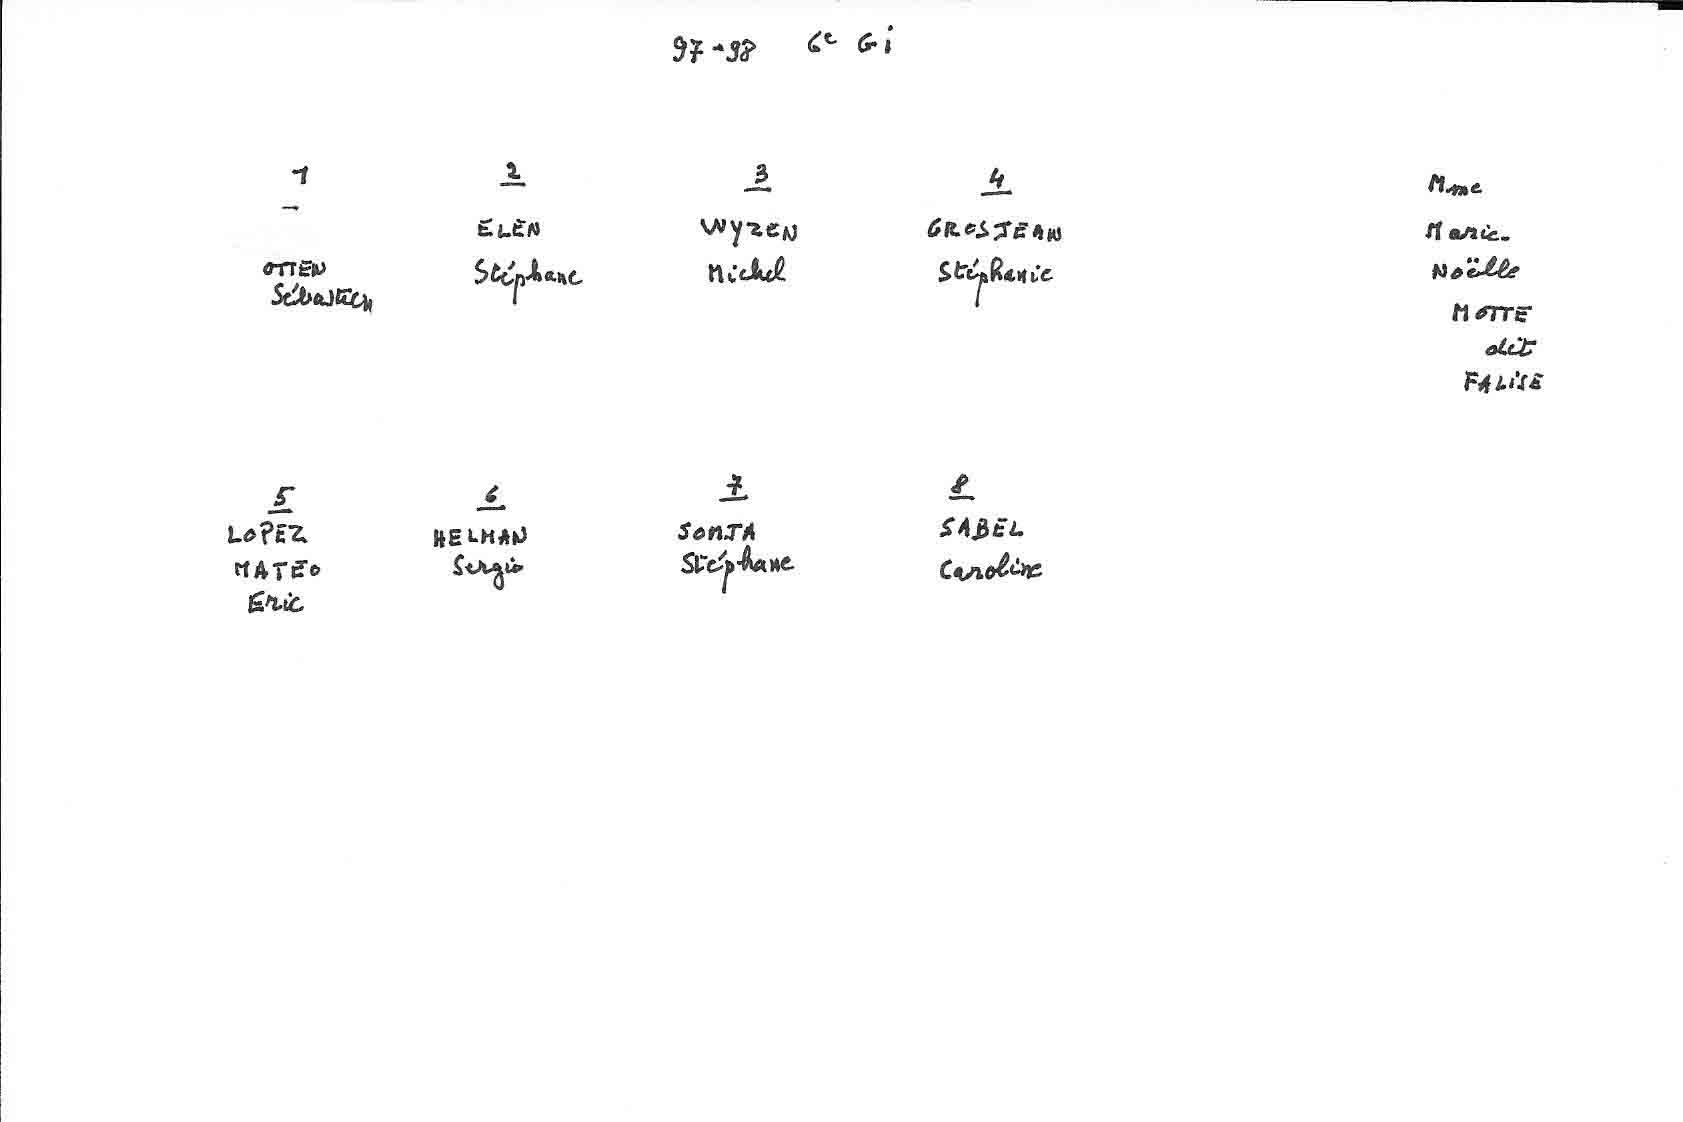 97-98 6e Gi
1
OTTEN
Sébastien
2
ELEN
Stéphane
3
WYZEN
Michel
4
GROSJEAN
Stéphanie
Mme
Marie-
Noëlle
MOTTE
dit
FALISE
5
LOPEZ
MATEO
Eric
6
HELMAN
Sergio
7
SONJA
Stéphane
8
SABEL
Caroline